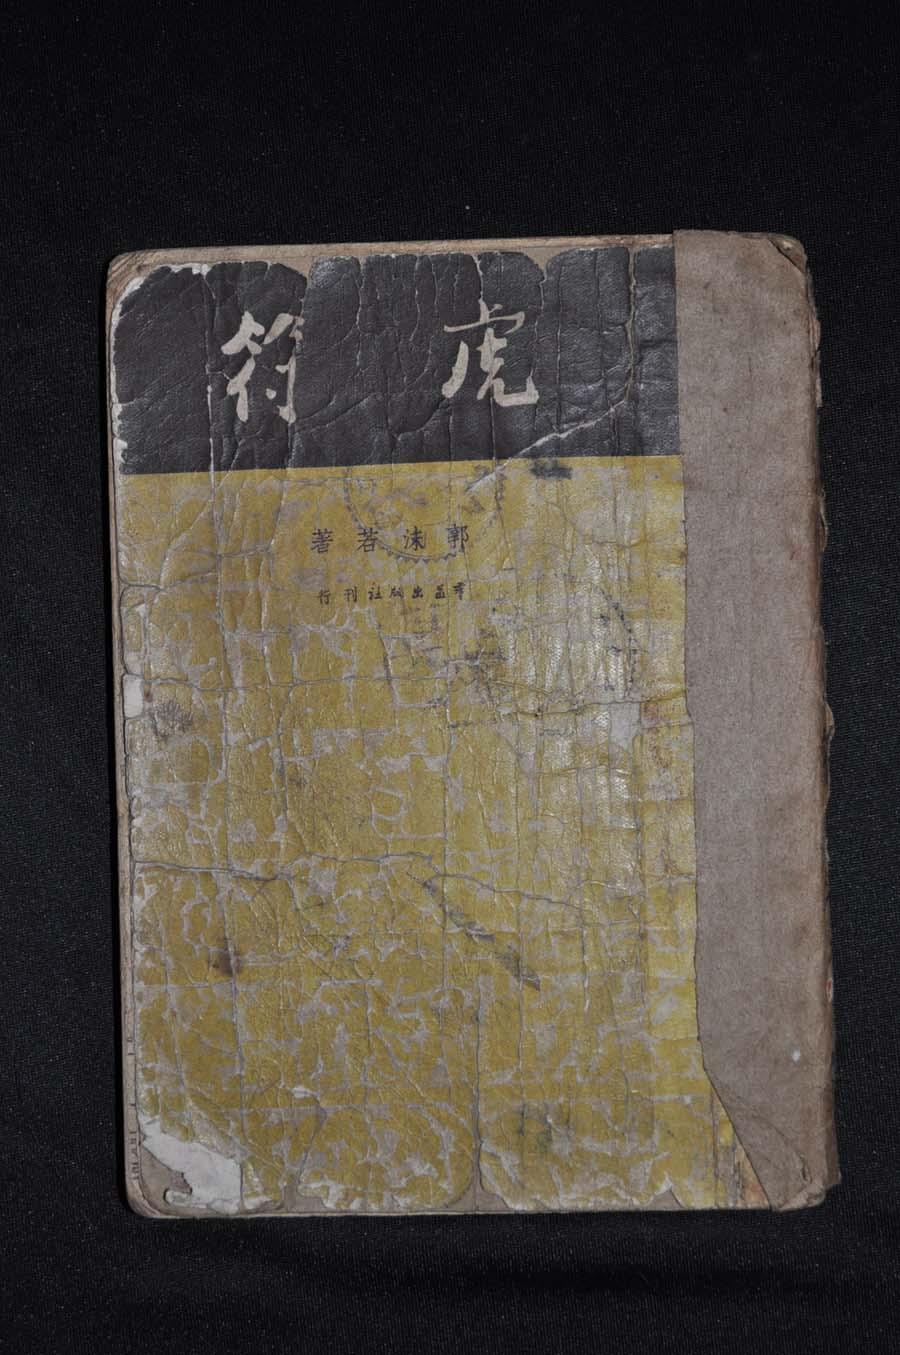 虎符
郭沫若著
羣益出版社刊行